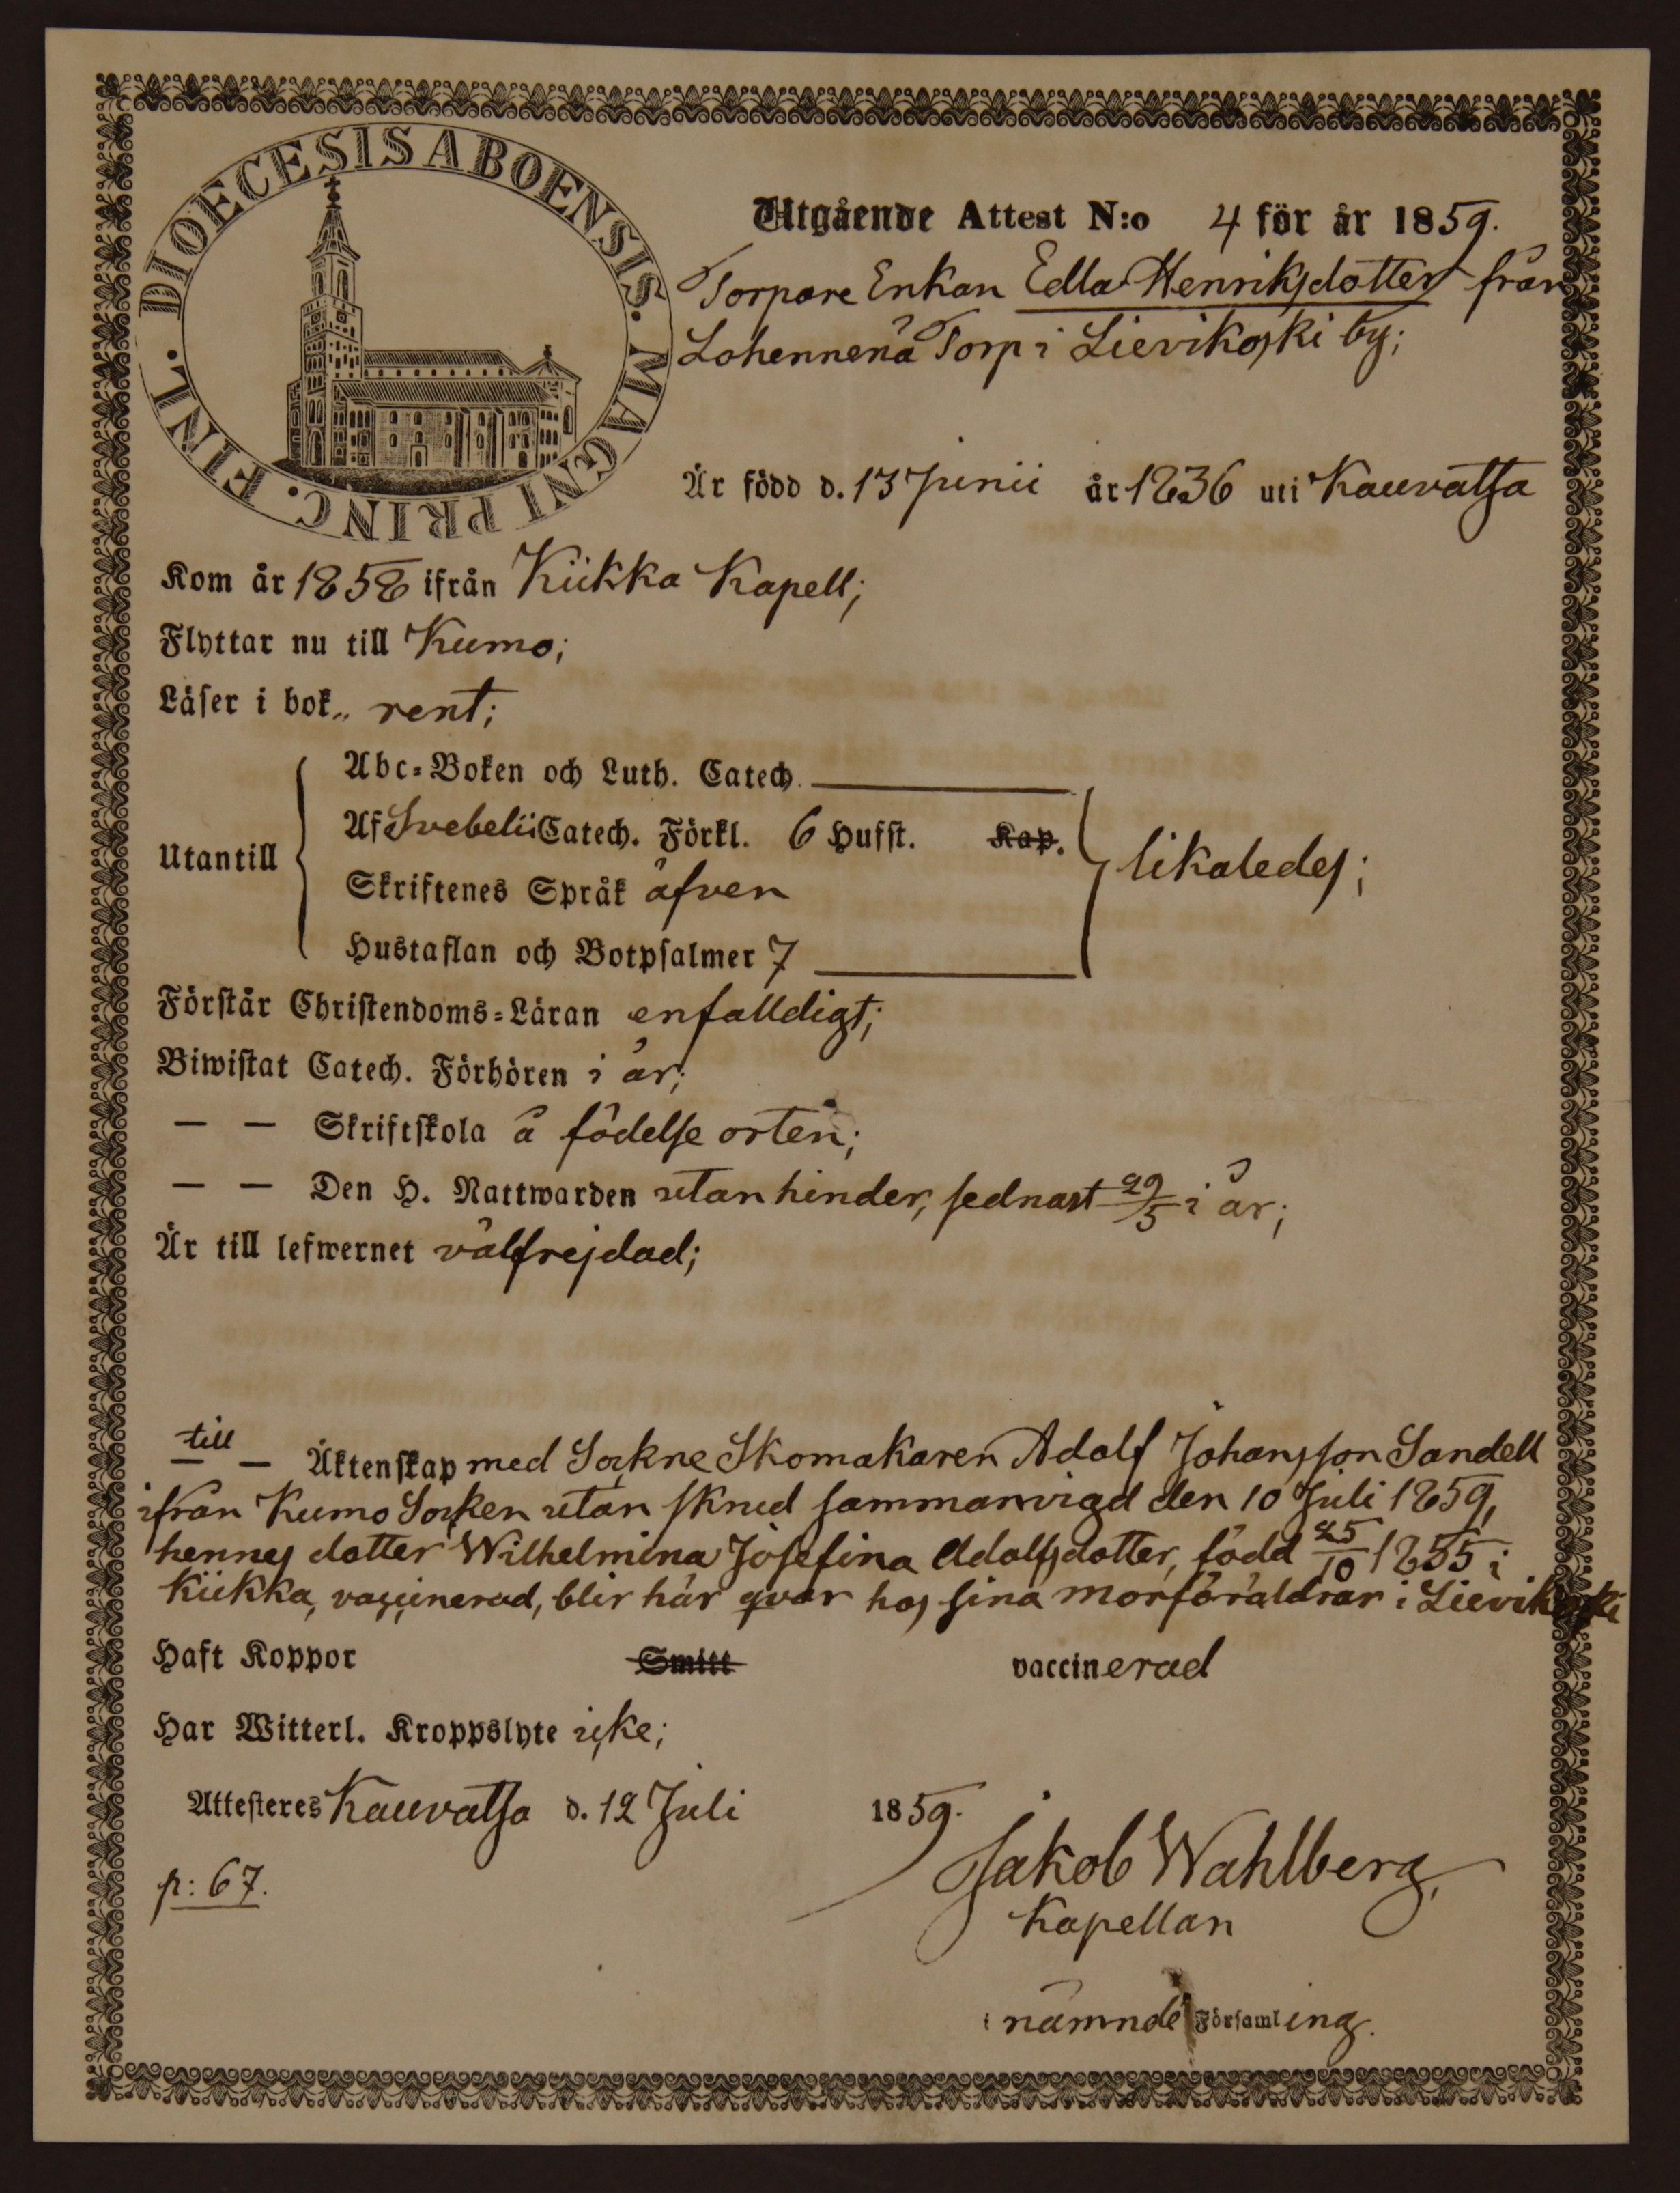 DIOECESIS ABOENSIS. MAGNI PRINC. FINL.
Utgående Attest N:o 4 för år 1859.
Torpare Enkan Edla Henriksdotter från
Lohennenä Torp i Lievikoski by;
Är född d. 13 Junii år 1836 uti Kauvatsa
Kom år 1858 ifrån Kiikka Kapell;
Flyttar nu till Kumo;
Läser i bok„ rent;
Abc-Boken och Luth. Catech.
Utantill
Af Svebelii Catech. Förkl. 6 Hufst. Kap.
likaledes;
Skriftenes Språk äfven
Hustaflan och Botpsalmer 7
Förstår Christendoms-Läran enfalldigt;
Biwistat Catech. Förhören i år;
— — Skriftskola å födelse orten;
— — Den H. Nattwarden utan hinder, sednast 29/5 i år;
Är till lefwernet välfrejdad;
till
— — Äktenskap med Sockne Skomakaren Adolf Johansson Sandell
ifrån Kumo Socken utan skrud sammanvigd den 10 Juli 1859,
hennes dotter Wilhelmina Josefina Adolfsdotter, född 25/10 1855 i
Kiikka, vaccinerad, blir här qvar hos sina morföräldrar i Lievikoski
Haft Koppor Smitt vaccinerad
Har Witterl. Kroppslyte icke;
Attesteres Kauvatsa d. 12 Juli 1859.
Jakob Wahlberg,
p: 67.
Kapellan
i nämnde Församling.